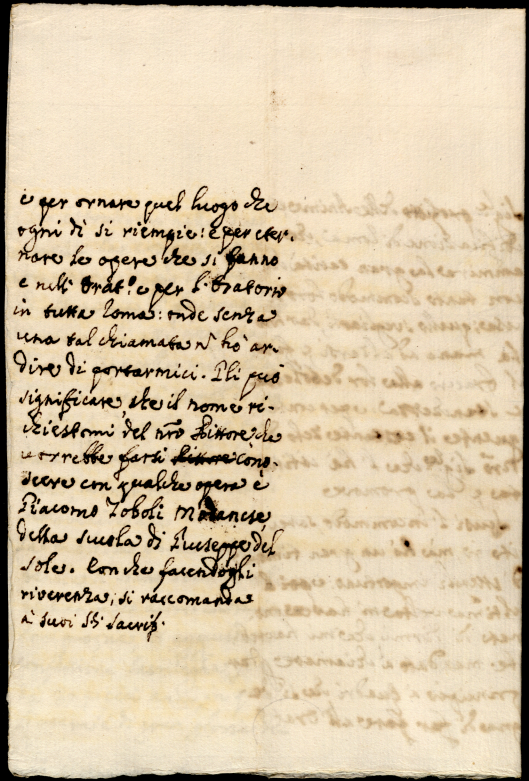 e per ornare quel luogo che
ogni dì si riempie: e per eter-
nare le opere che si fanno
e nell' Orat.o e per l' Oratorio
in tutta Roma: onde senza
una tal chiamata ñ hò ar-
dire di portarmici. Gli può
significare, che il nome ri-
chiestomi del nrõ Pittore, che
vorrebbe farsi Pittore cono-
scere con qualche opera è
Giacomo Zoboli Modanese
della scuola di Giuseppe del
Sole. Con che facendogli
riverenza, si raccomanda
a' suoi SS.i sacrif.